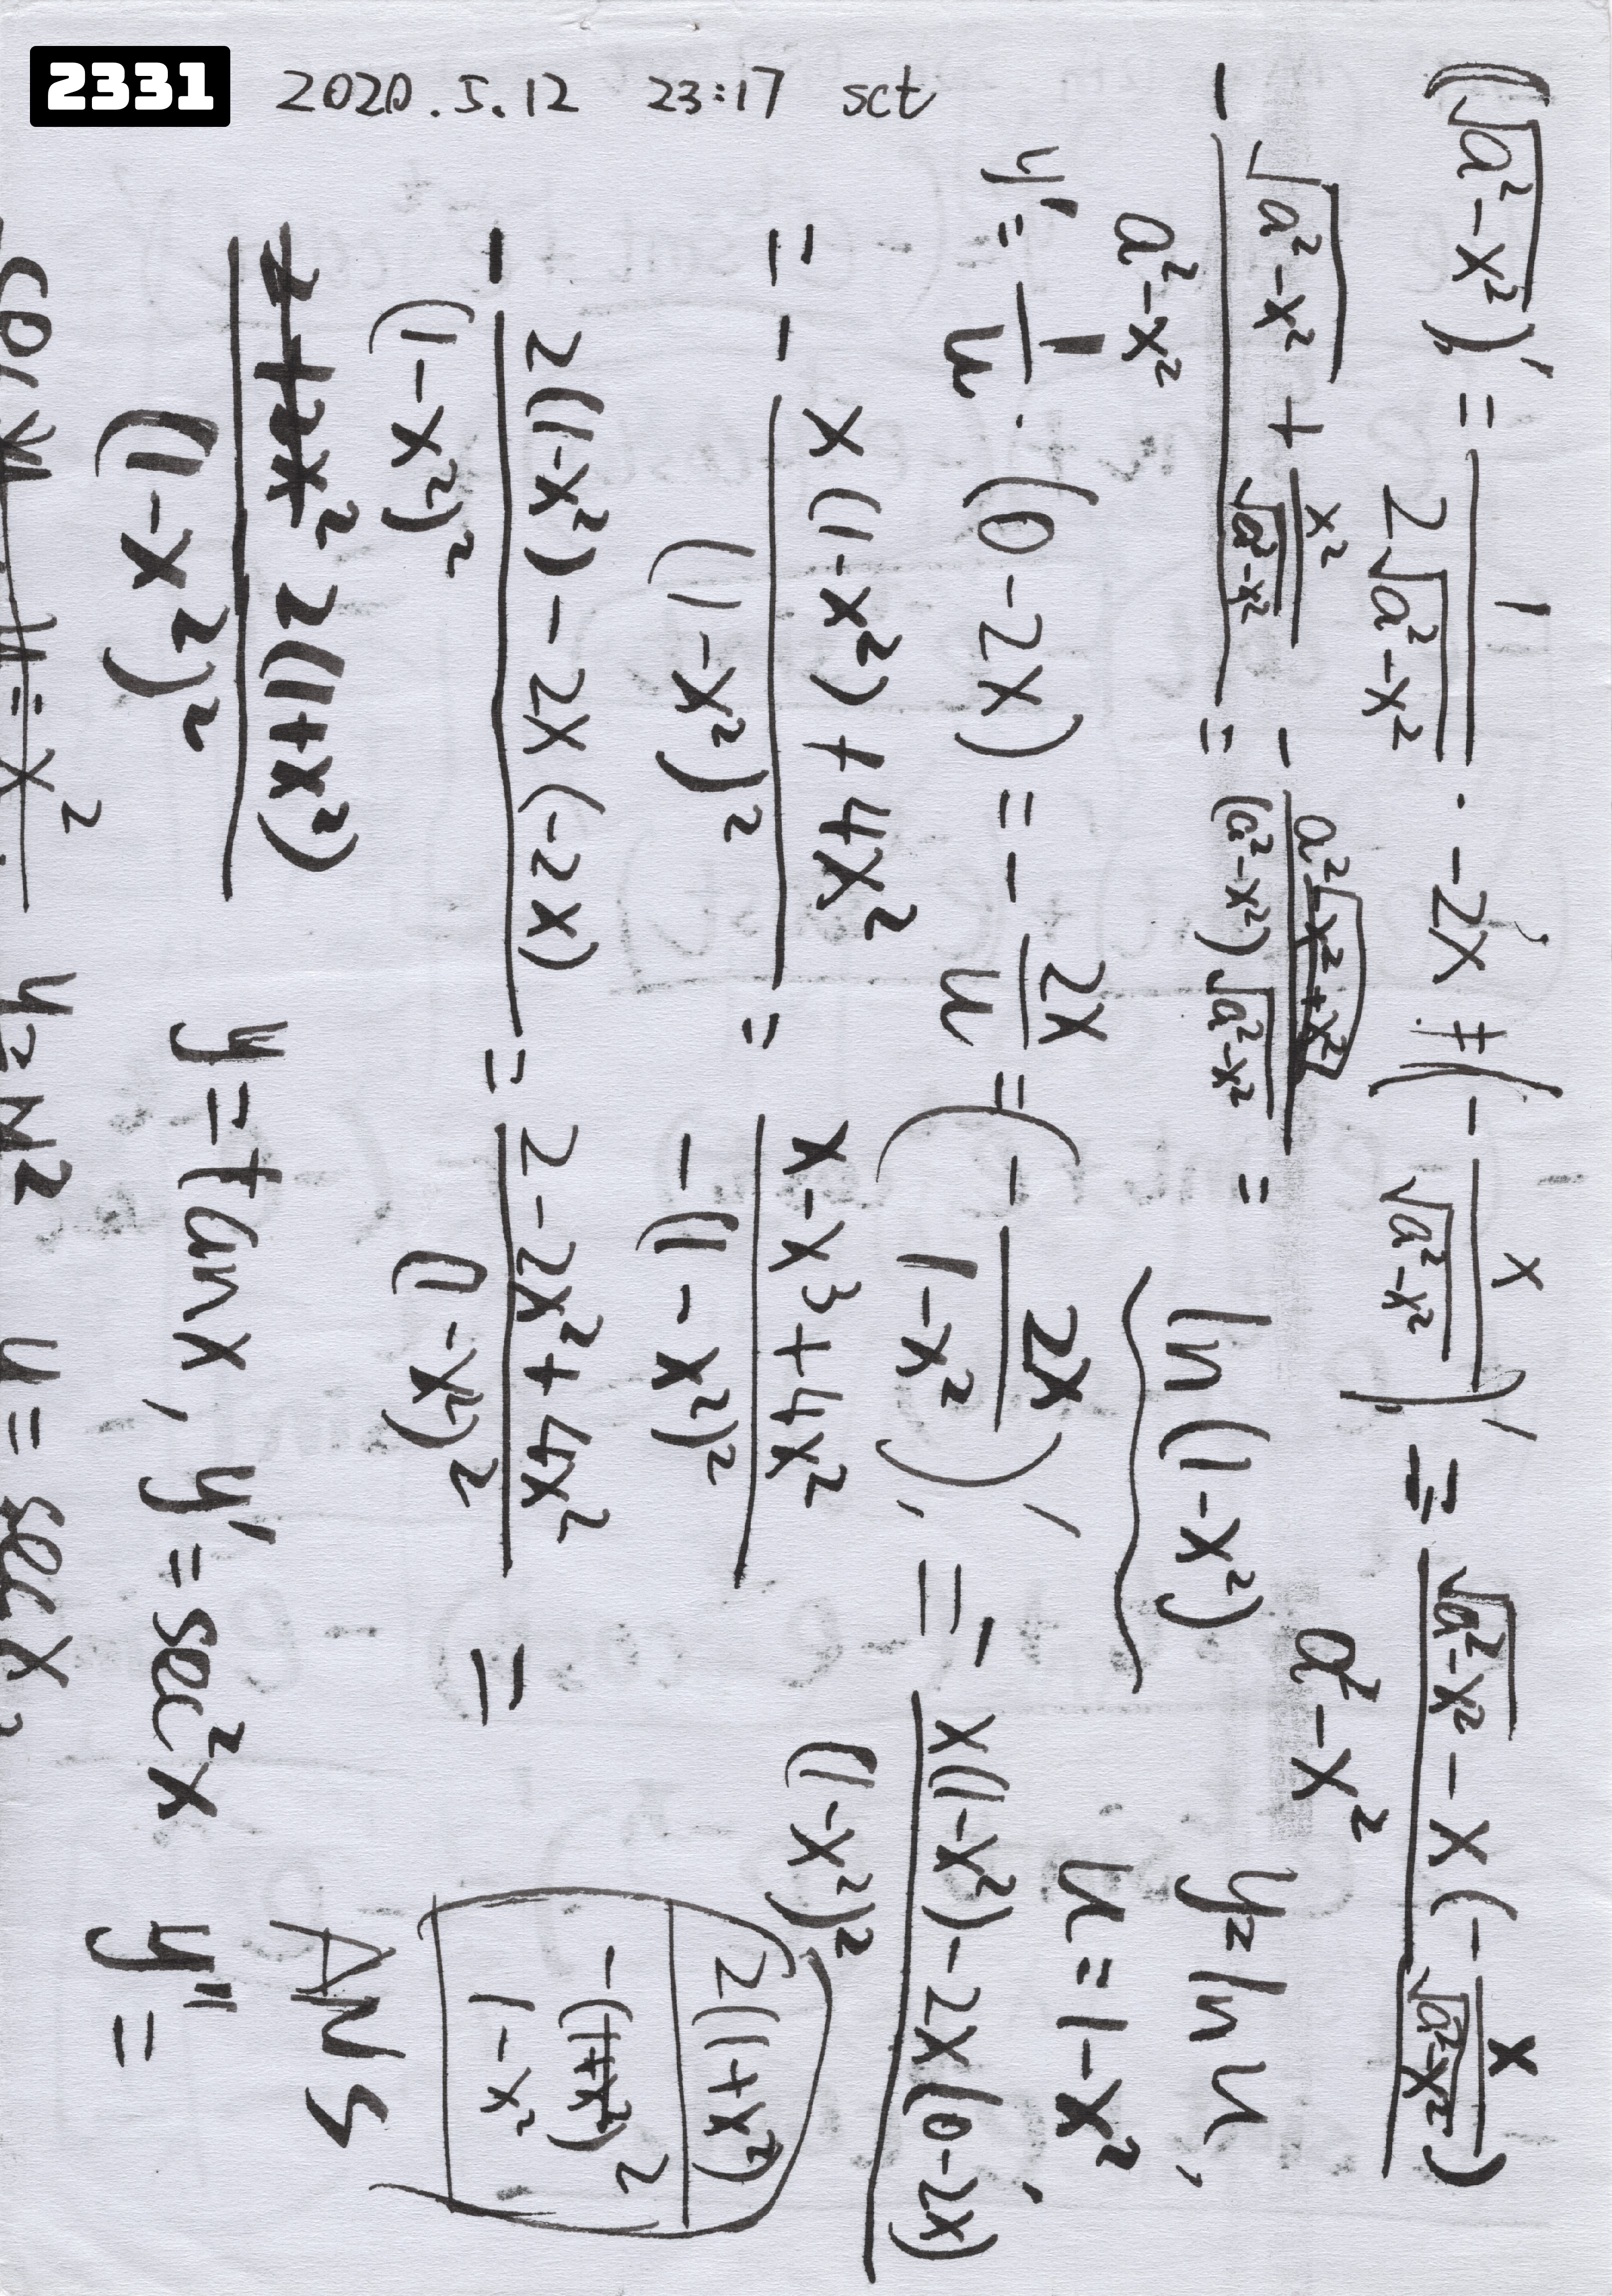 2331 2020.5.12 23:17 sct
(√(a²-x²))' = 1/(2√(a²-x²)) · -2x = (- x/√(a²-x²))' = (√(a²-x²) - x(- x/√(a²-x²)))/(a²-x²)
- (√(a²-x²) + x²/√(a²-x²))/(a²-x²) = - (a²-x²+x²)/((a²-x²)√(a²-x²)) =
ln(1-x²) y=ln u,
y' = 1/u · (0-2x) = - 2x/u = (- 2x/(1-x²))' = - (x(1-x²) - 2x(0-2x))/(1-x²)² u=1-x²,
= - (x(1-x²)+4x²)/(1-x²)² = - (x-x³+4x²)/(1-x²)²
- (2(1-x²)-2x(-2x))/(1-x²)² = (2-2x²+4x²)/(1-x²)² = - 2(1+x²)/(1-x²)²
2(1+x²)/(1-x²)² ANS
y=tanx, y'=sec²x y''=